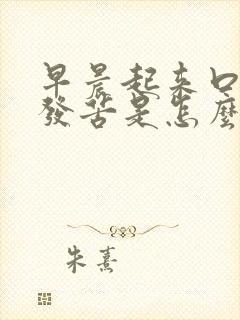 早晨起来口
發苦是怎麼
朱熹